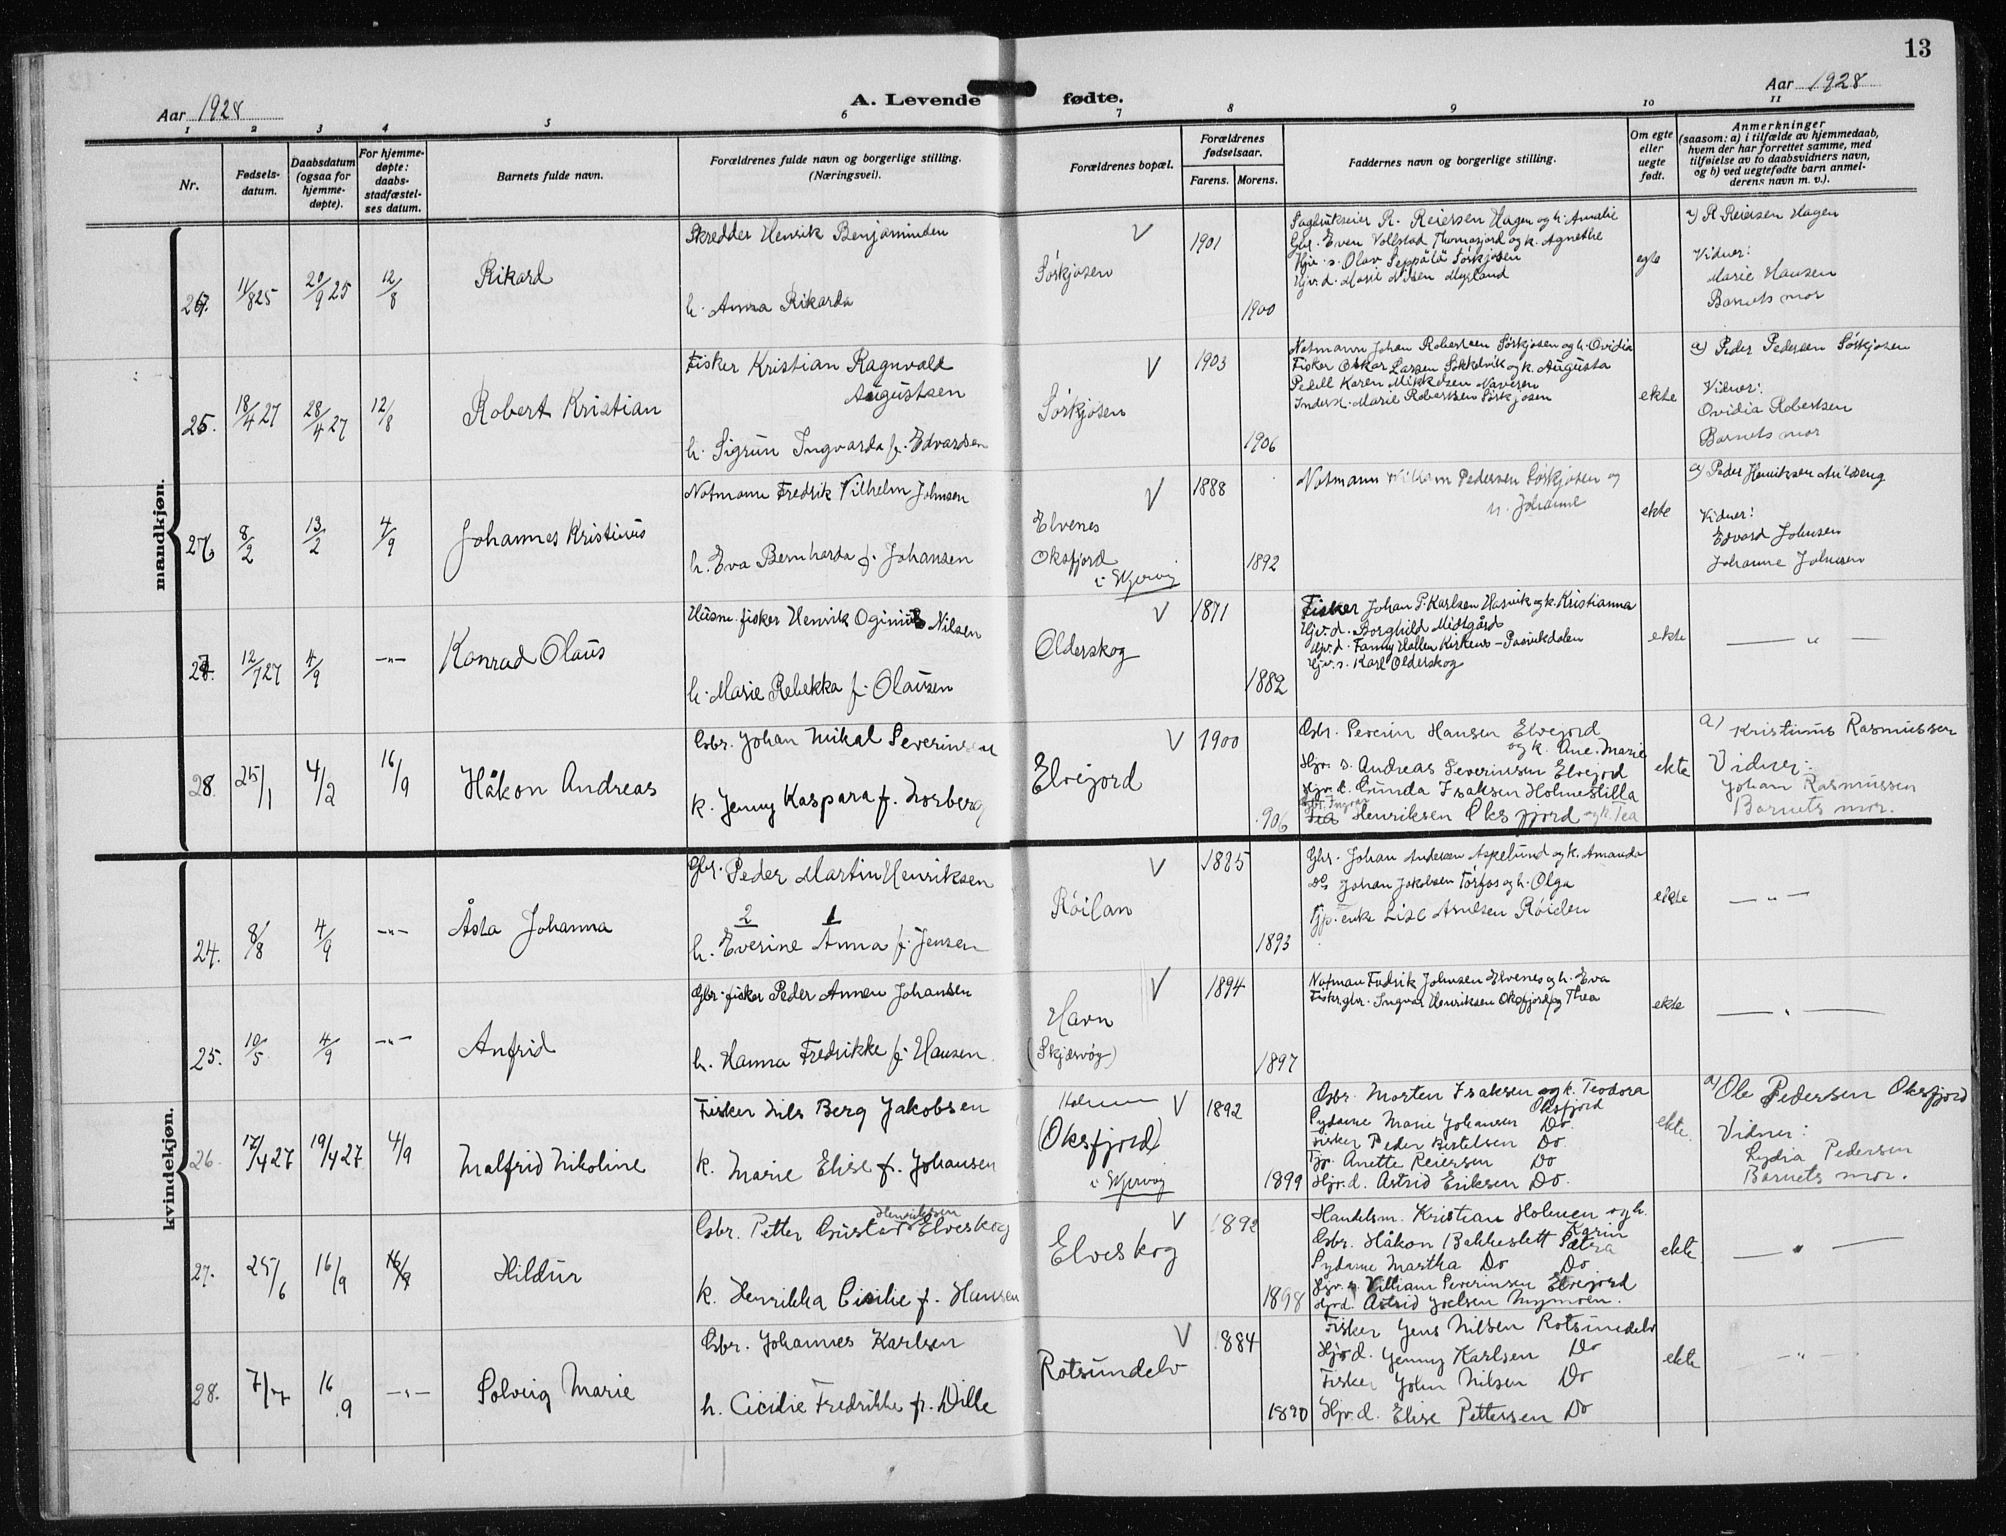 13
Aar 1928
A. Levende fødte.
Aar 1928
1 2 3 4 5 6 7 8 9 10 11
Nr.
Fødsels-
datum.
Daabsdatum
(ogsaa for
hjemme-
døpte).
For hjemme-
døpte:
daabs-
stadfæstel-
ses datum.
Barnets fulde navn.
Forældrenes fulde navn og borgerlige stilling.
(Næringsvei).
Forældrenes bopæl.
Forældrenes
fødselsaar.
Farens. Morens.
Faddernes navn og borgerlige stilling.
Om egte
eller
uegte
født.
Anmerkninger
(saasom: a) i tilfælde av hjemmedaab,
hvem der har forrettet samme, med
tilføielse av to daabsvidners navn,
og b) ved uegtefødte barn anmel-
derens navn m. v.).
mandkjøn.
11/8 25 20/9 25 12/8
Rikard
Skredder Henrik Benjaminsen
h. Anna Rikarda
V
Sørkjosen
1901
1900
Sagbrukseier R. Reiersen Hagen og h. Amalie
Gbr. Even Vollstad Thomasjord og k. Agnethe
Hjv. s. Olav Seppälä Sørkjosen
Hjv. d. Marie Nilsen Myrland
egte
a) R Reiersen Hagen
Vidner:
Marie Hansen
Barnets mor
18/4 27 28/4 27 12/8
Robert Kristian
Fisker Kristian Ragnvald
Augustsen
h. Sigrun Ingvarda f. Edvardsen
V
Sørkjosen
1903
1906
Notmann Johan Robertsen Sørkjosen og h. Ovidia
Fisker Oskar Larsen Sokkelvik og k. Augusta
Pedell Karen Mikkelsen Naveren
Marie Robertsen Sørkjosen
ekte
a) Peder Pedersen Sørkjosen
Vidner:
Ovidia Robertsen
Barnets mor
8/2 13/2 4/9
Johannes Kristinus
Notmann Fredrik Vilhelm Johnsen
h. Eva Bernharda f. Johansen
V
Elvenes
Oksfjord
i Skjervøy
1888
1892
Notmann William Pedersen Sørkjosen og
h. Johanne
ekte
a) Peder Henriksen
Vidner:
Edvard Johnsen
Johanne Johnsen
12/7 27 4/9 —"—
Konrad Olaus
Husm. fisker Henrik Oginius Nilsen
h. Marie Rebekka f. Olaussen
V
Olderskog
1871
1882
Fisker Johan P. Karlsen Hasvik og k. Kristianna
Hjv. d. Borghild Midtgård
Hjv. d. Fanny Hallen Kirkenes - Pasvikdalen
Hjv. s. Karl Olderskog
ekte
— " —
28. 25/1 4/2 16/9
Håkon Andreas
Gbr. Johan Mikal Severinsen
k. Jenny Kaspara f. Norberg
V
Elvejord
1900
.906
Gbr. Peverin Hansen Elvejord
og k. Ane. Marie
Hjv. s. Andreas Severinsen Elvejord
Hjv. d. Gunda Isaksen Holmestilla
Gbr. Ingvar
Henriksen Oksfjord og k. Tea
ekte
a) Kristinus Rasmussen
Vidner:
Johan Rasmussen
Barnets mor.
kvindekjøn.
24. 8/8 4/9 —"—
Åsta Johanna
Gbr. Peder Martin Henriksen
2 1
h. Everine Anna f. Jensen
V
Røilan
1885
1893
Gbr. Johan Andersen Askelund og k. Amanda
Do Johan Jakobsen Tørfos og h. Olga
Fjv. enke Lise Arnesen Røielen
ekte
— " —
25. 10/5 4/9 —"—
Anfrid
Gbr. fisker Peder Annen Johansen
h. Hanna Fredrikke f. Hansen
V
Havn
(Skjærvøy)
1894
1897
Notman Fredrik Johnsen Elvenes og h. Eva
Fisker, gbr. Ingvar Henriksen Oksfjord og Thea
ekte
— " —
26. 17/4 27 19/4 27 4/9
Malfrid Nikoline
Fisker Nils Berg Jakobsen
k. Marie Elise f. Johansen
V
(Oksfjord)
i Skjervøy
1892
1899
Gbr. Morten Isaksen og k. Teodora
Oksfjord
Sydame Marie Johansen Do.
Fisker Peder Bertelsen Do.
Fjv. Anette Reiersen Do
Hjv. d. Astrid Eriksen Do.
ekte.
a) Ole Pedersen Oksfjord
Vidner:
Lydia Pedersen
Barnets mor.
27. 25/6 16/9 16/9
Hildur
Henriksen
Gbr. Petter Gustav Elveskog
k. Henrikka Cicilie f. Hansen
V
Elveskog
1892
1898
Handelsm. Kristian Holmen og h.
Karin
Gbr. Håkon Bakkeslett Petra
Sydame Martha Do Do
Hjv. s. Villiam Severinsen Elvejord
Hjv. d. Astrid Joelsen Nymoen.
ekte
— " —
28. 7/7 16/9 —"—
Solveig Marie
Gbr. Johannes Karlsen
h. Cicilie Fredrikke f. Dille
V
Rotsundelv
1884
1890
Fisker Jens Nilsen Rotsundelv
Hjv. d. Jenny Karlsen Do
Fisker John Nilsen Do
Hjv. d. Elise Pettersen Do
ekte
— " —